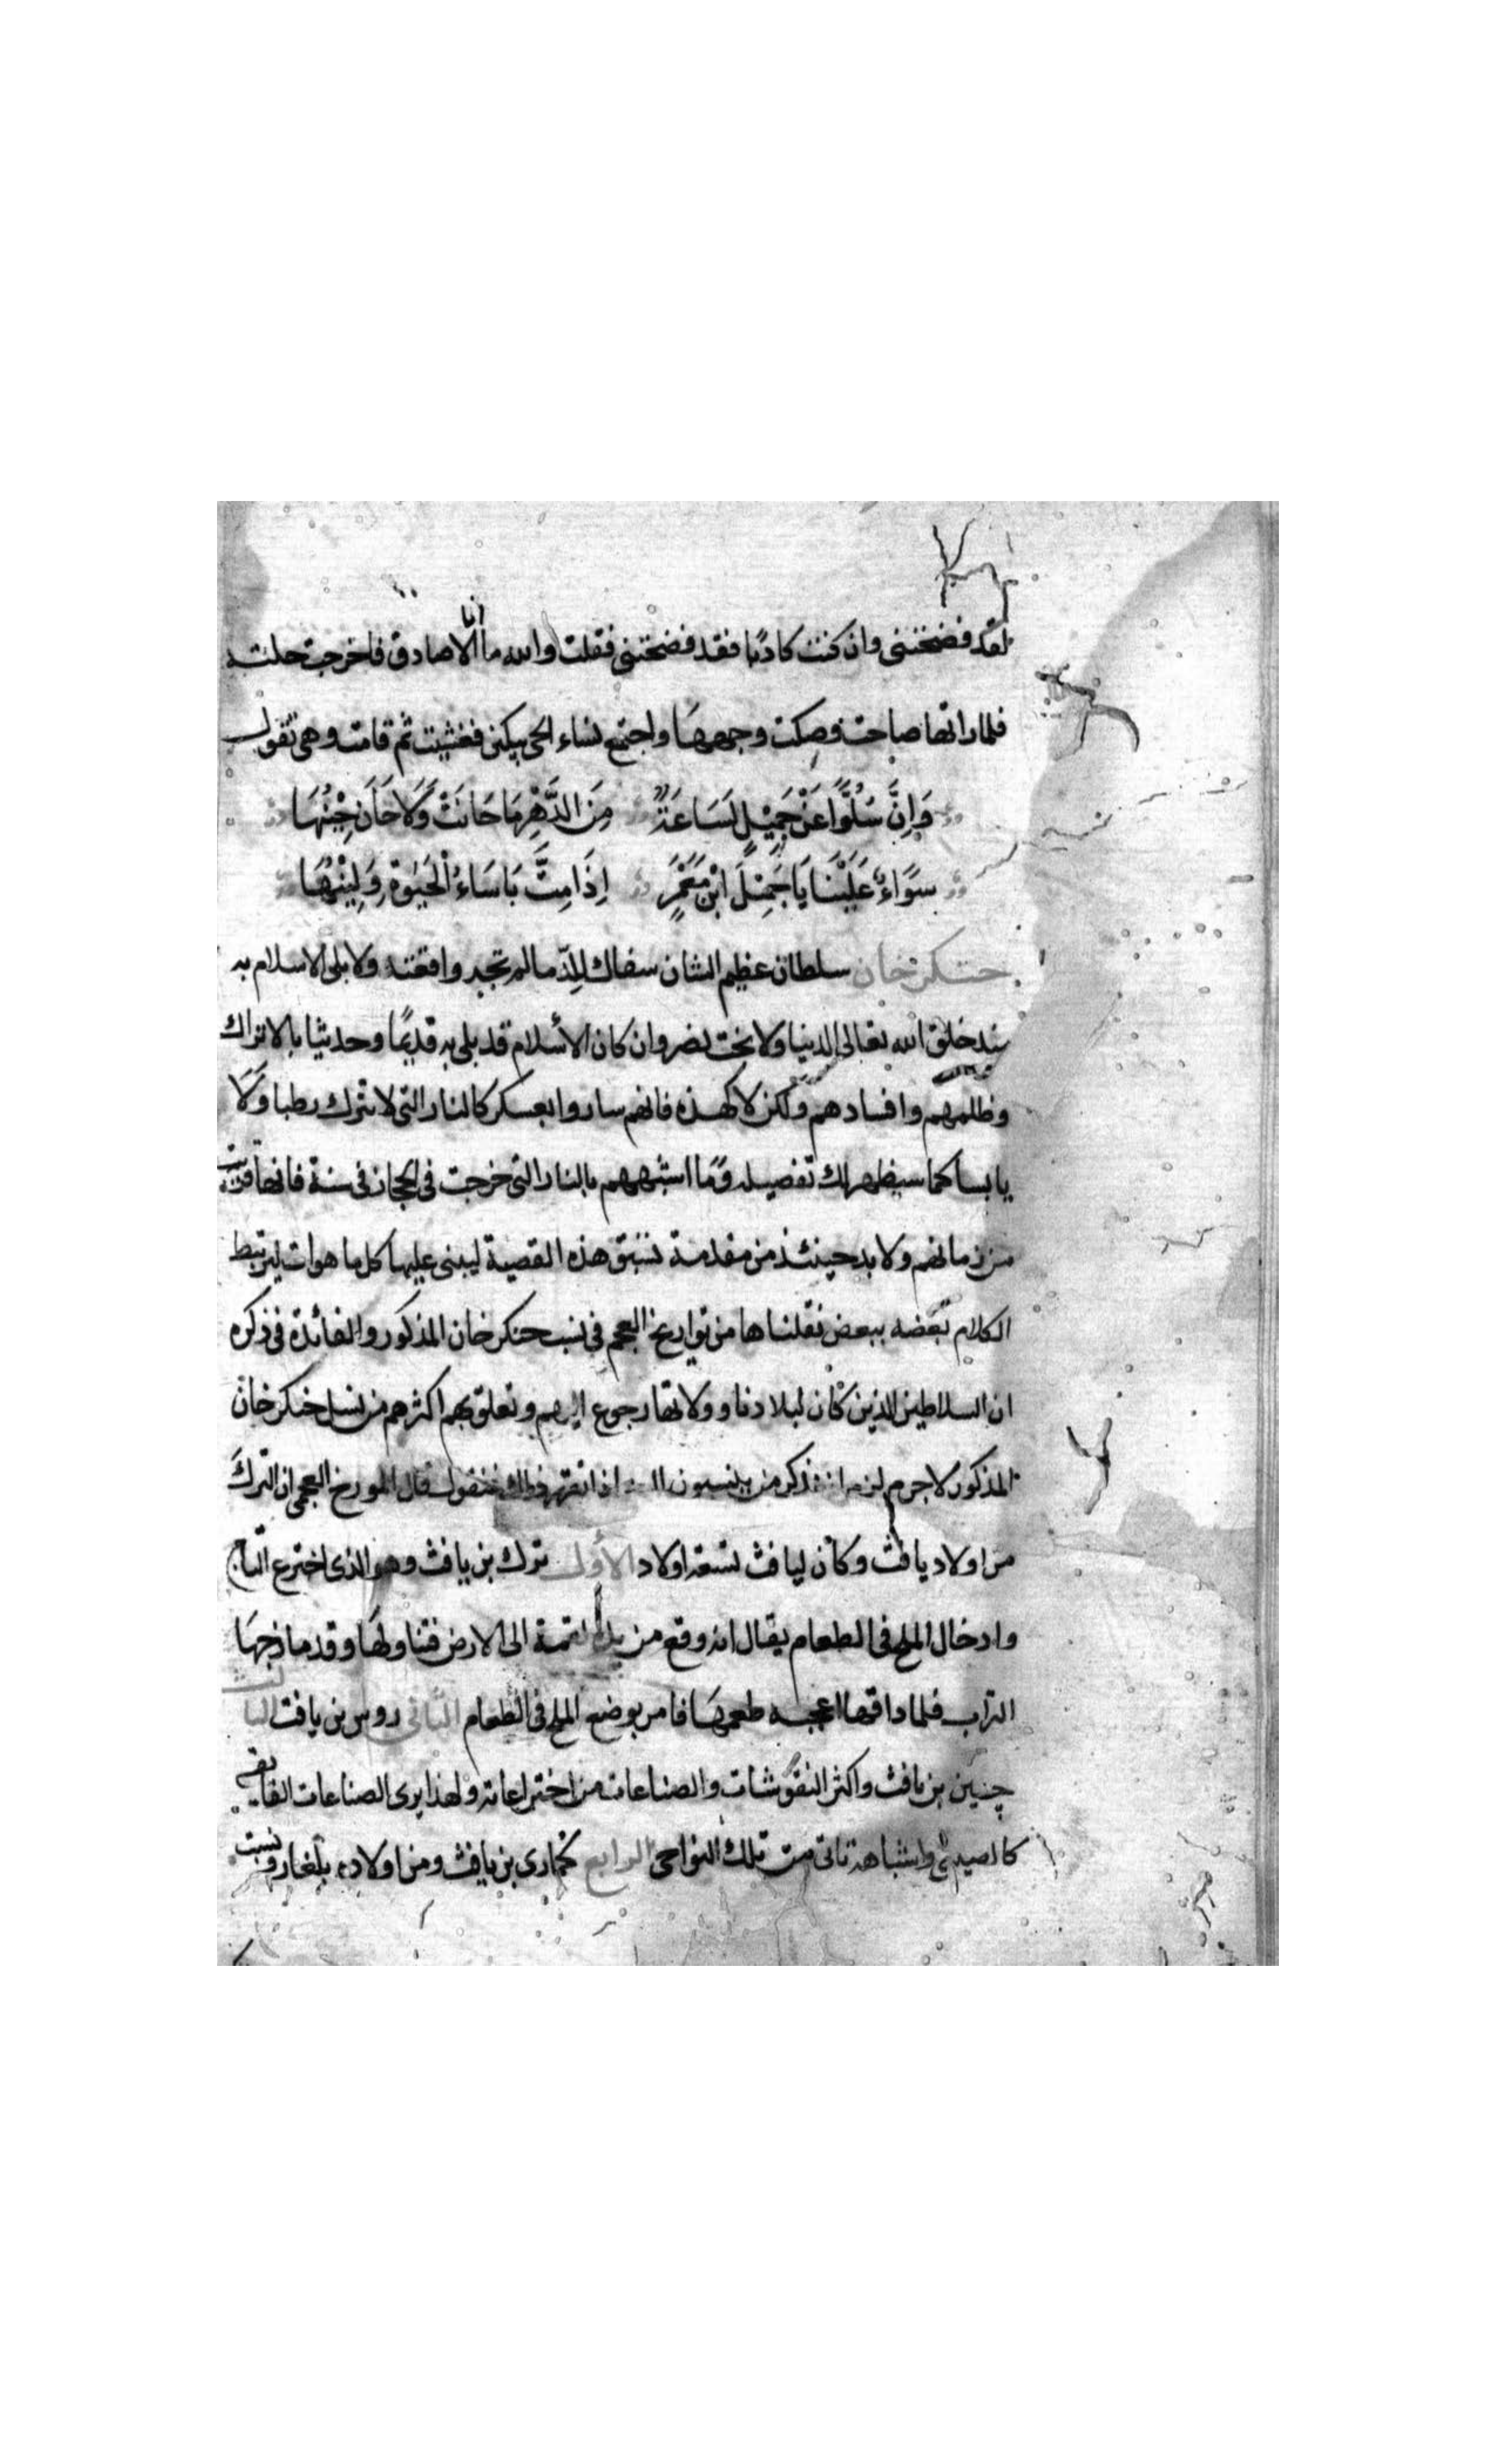 لقد فضحتنى وان كنت كاذبا فقد فضحتنى فقلت والله ما انا الا صادق فاخرجت حلته
فلما راتها صاحت وصكت وجهها واجتمع نساء الحى يبكين فغشيت ثم قامت وهى تقول
وَاِنَّ سُلُوًّا عَنْ جَمِيْلٍ لَسَاعَةٌ مِنَ الدَّهْرِ مَا حَانَتْ وَلَا حَانَ حِيْنُهَا
سَوَاءٌ عَلَيْنَا يَا جَمِيْلَ ابْنَ مَعْمَرٍ اِذَا مِتَّ بَاسَاءُ الْحَيٰوةِ وَلِيْنُهَا
جنكز خان سلطان عظيم الشان سفاك للدما لم تجد واقعته ولا بلى الاسلام به
منذ خلق الله تعالى الدنيا ولا بخت نصر وان كان الأسلام قد بلى به قديمًا وحديثا بالاتراك
وظلمهم وافسادهم ولكن لا كهذه فانهم ساروا بعسكر كالنار التى لا تترك رطبا وَلَا
يابسا كما سيظهر لك تفصيله وَمَا اشبههم بالنار التى خرجت فى الحجاز فى سنة فانها قريبة
من زمانهم ولا بد حينئذ من مقدمة تسبق هذه القصية ليبنى عليها كل ما هو ات ليرتبط
الكلام بعضه ببعض نقلناها من تواريخ العجم فى نسب جنكز خان المذكور والفائدة فى ذكره
ان السلاطين الذين كان لبلادنا وولاتها رجوع اليهم وتعلق بهم اكثرهم من نسل جنكز خان
المذكور لا جرم لزم ان نذكر من ينسبون اليه اذا تقرر ذلك فنقول قال المورخ العجمى ان الترك
من اولاد يافث وكان ليافث تسعة اولاد الأول ترك بن يافث وهو الذى اخترع التاج
وادخال الملح فى الطعام يقال انه وقع من يده لقمة الى الارض فتناولها وقد مازجها
التراب فلما ذاقها اعجبه طعمها فامر بوضع الملح فى الطعام الثانى روس بن يافث الثالث
چين بن يافث واكثر النقوشات والصناعات من اختراعاته ولهذا يرى الصناعات الفايقة
كالصينى واشباهه تاتى من تلك النواحى الرابع كمارى بن يافث ومن اولاده بلغار